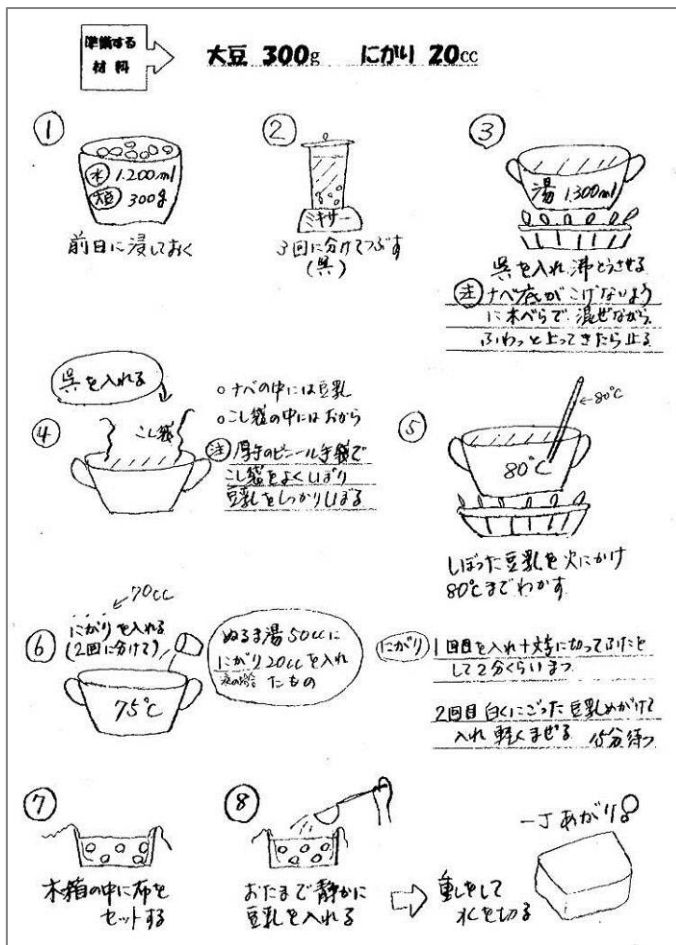 準備する
材料
大豆 300g にがり 20cc
①
水 1.200ml
大豆 300g
前日に浸しておく
②
ミキサー
3回に分けてつぶす
(呉)
③
湯 1.300ml
呉を入れ沸とうさせる
注 ナベ底がこげないよう
に木べらで、混ぜながら、
ふわっと上ってきたら止る
④
呉を入れる
こし袋
○ナベの中には豆乳
○こし袋の中にはおから
注 厚手のビニール手袋で
こし袋をよくしぼり
豆乳をしっかりしぼる
⑤
←80℃
80℃
しぼった豆乳を火にかけ
80℃までわかす
⑥
70cc
にがりを入れる
(2回に分けて)
75℃
ぬるま湯50ccに
にがり20ccを入れ
たもの
にがり
1回目を入れ十文字に切ってふたを
して2分くらいまつ
2回目 白くにごった豆乳めがけて
入れ 軽くまぜる 15分待つ
⑦
木箱の中に布を
セットする
⑧
おたまで静かに
豆乳を入れる
重しをして
水を切る
一丁あがり